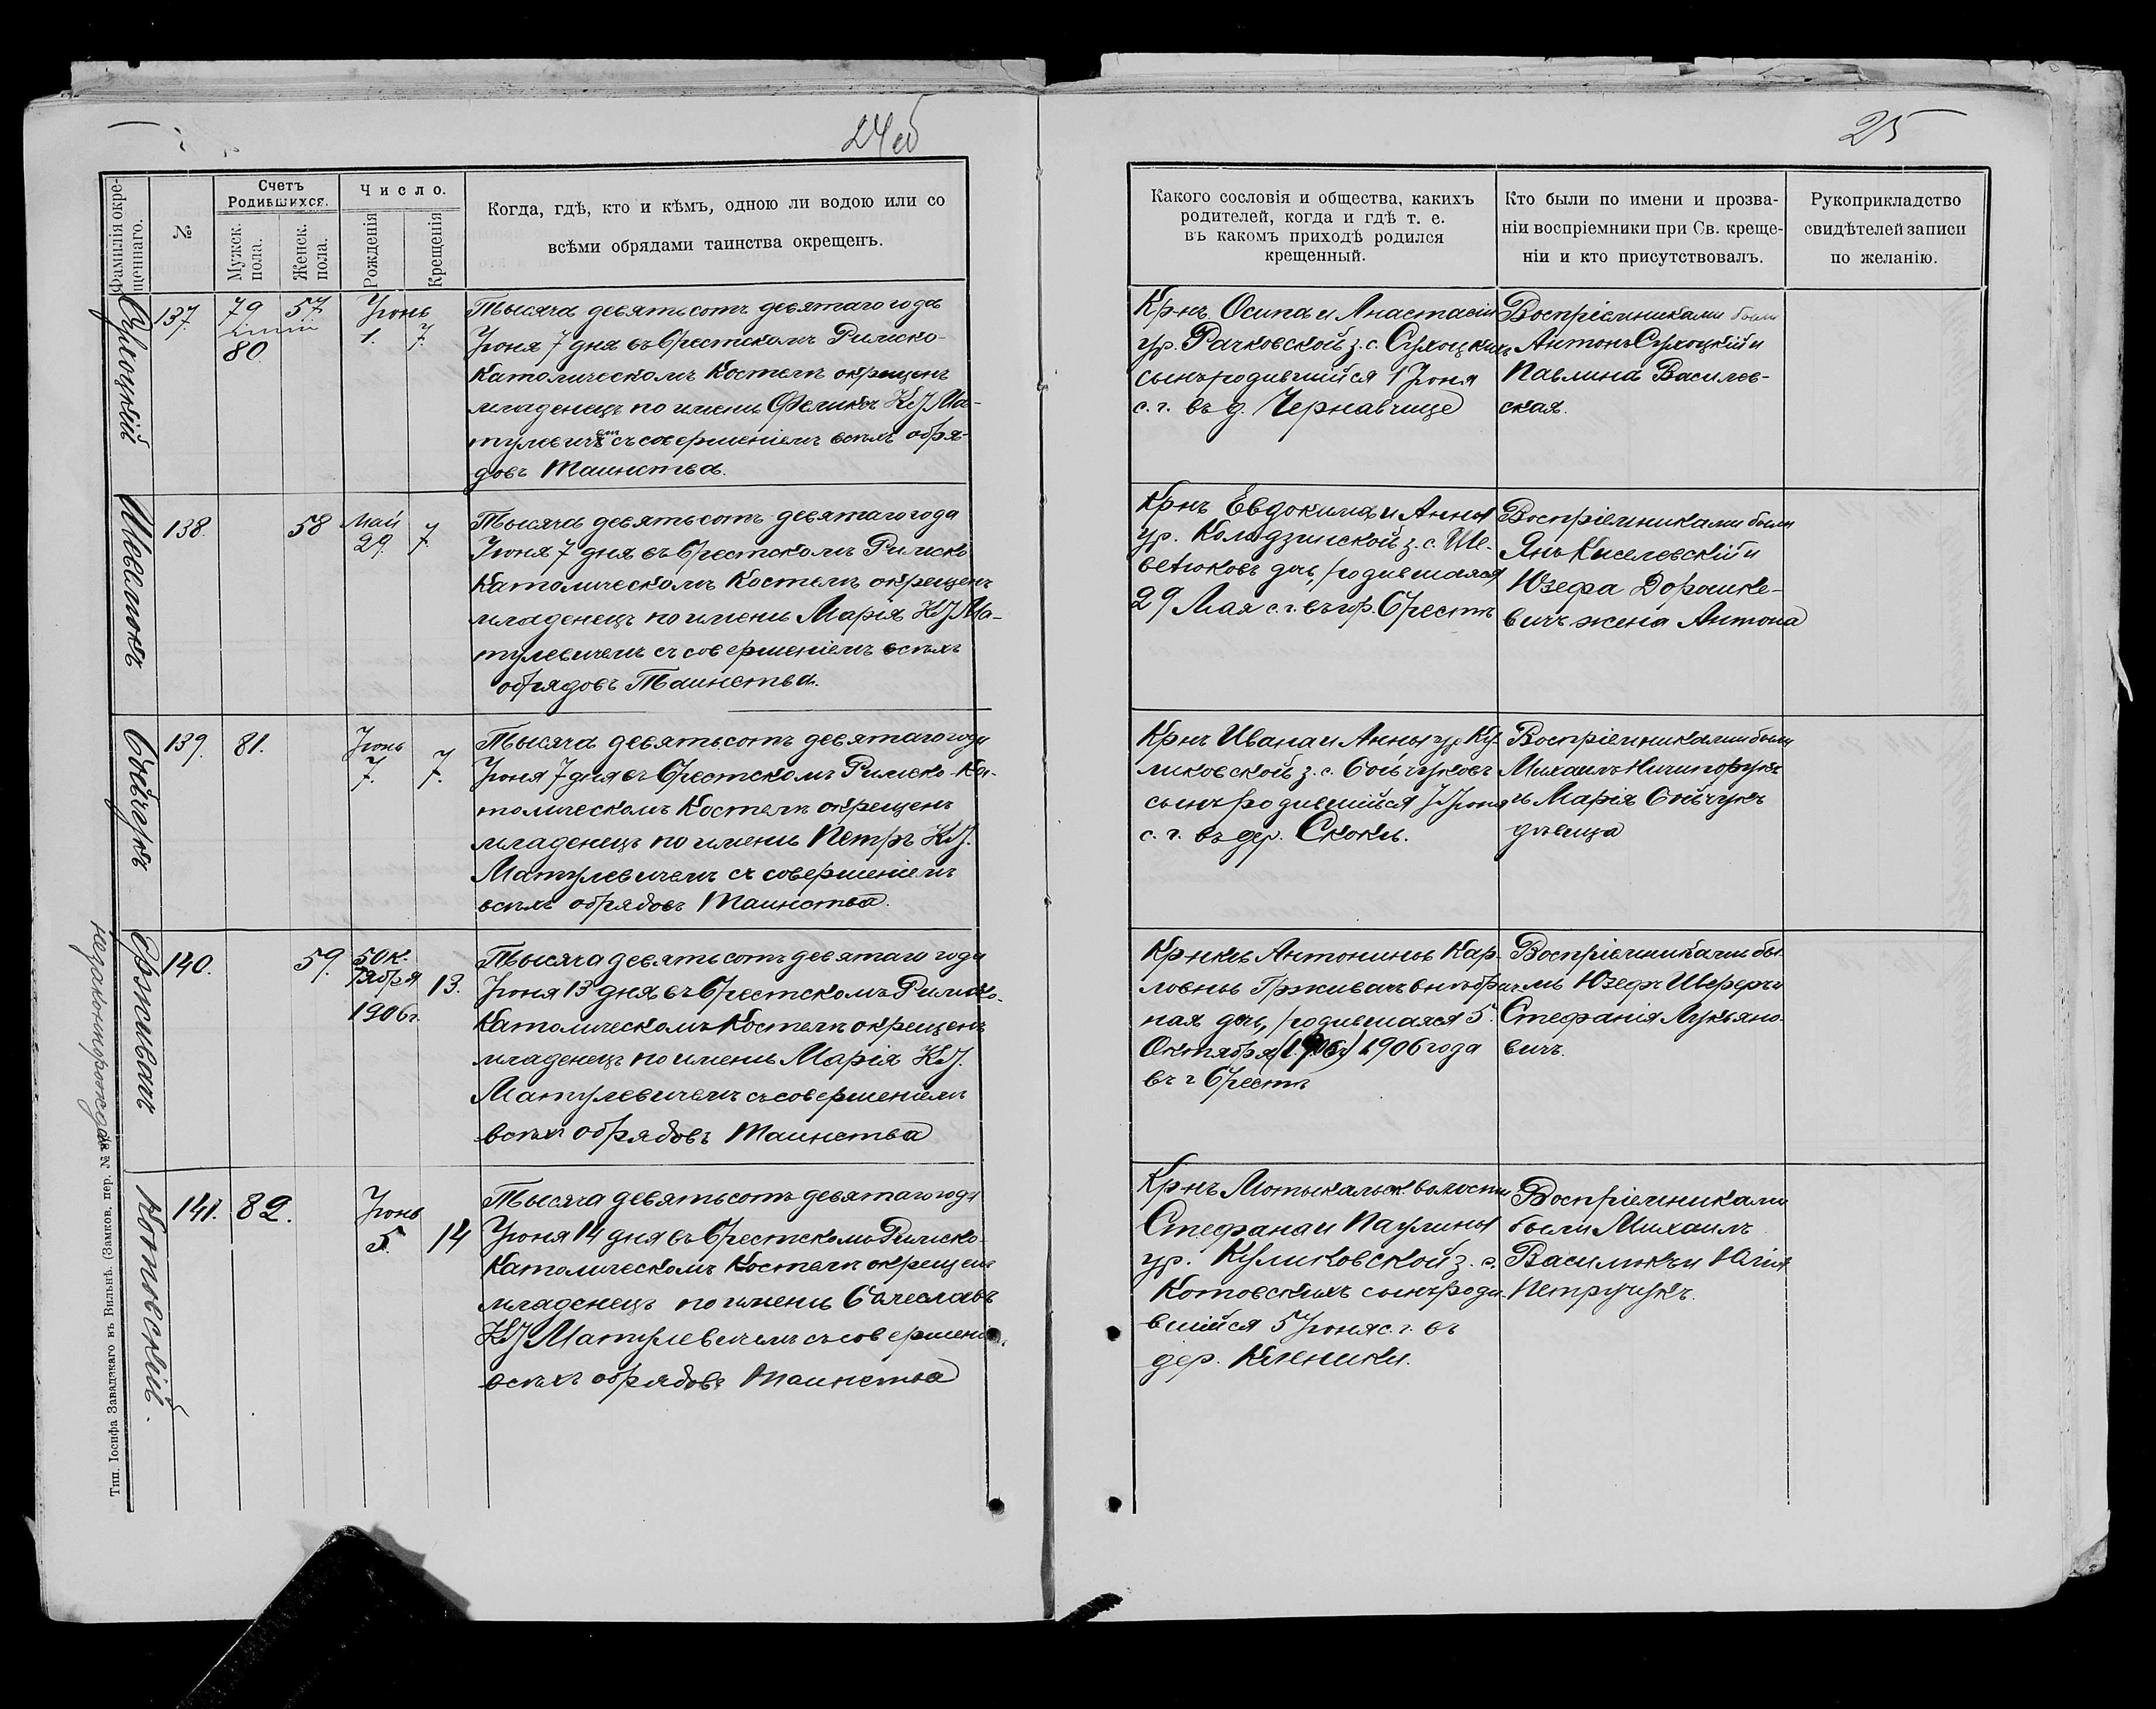 24об
25
Фамилія окрещеннаго.
№
Счетъ Родившихся.
Мужск. пола.
Женск. пола.
Число.
Рожденія
Крещенія
Когда, гдѣ, кто и кѣмъ, одною ли водою или со
всѣми обрядами таинства окрещенъ.
Какого сословія и общества, какихъ
родителей, когда и гдѣ т. е.
въ какомъ приходѣ родился
крещенный.
Кто были по имени и прозва-
ніи воспріемники при Св. креще-
ніи и кто присутствовалъ.
Рукоприкладство
свидѣтелей записи
по желанію.
Сухоцкій
137
79 57
80
Іюнь
1. 7.
Тысяча девятьсотъ девятаго года
Іюня 7 дня въ Брестскомъ Римско-
Католическомъ Костелѣ окрещенъ
младенецъ по имени Феликсъ К J Ма-
тулевичемъ съ совершеніемъ всѣхъ обря-
довъ Таинства.
Крнъ Осипа и Анастасіи
ур. Рачковской з. с. Сухоцкихъ
сынъ родившійся 1 Іюня
с. г. въ д. Чернавчице
Воспріемниками были
Антонъ Сухоцкій и
Павлина Василев-
ская.
Шеветюкъ
138.
58
Май
29. 7.
Тысяча девятьсотъ девятаго года
Іюня 7 дня въ Брестскомъ Римско
Католическомъ Костелѣ окрещенъ
младенецъ по имени Марія К J Ма-
тулевичемъ съ совершеніемъ всѣхъ
обрядовъ Таинства.
Крнъ Евдокима и Анны
ур. Колодзинской з. с. Ше-
ветюковъ дочь, родившаяся
29 Мая с. г. въ гор. Брестѣ
Воспріемниками были
Янъ Киселевскій и
Юзефа Дорошке-
вичъ жена Антона
Бойчукъ
139. 81.
Іюнь
7. 7.
Тысяча девятьсотъ девятаго года
Іюня 7 дня въ Брестскомъ Римско-Ка-
толическомъ Костелѣ окрещенъ
младенецъ по имени Петръ К J.
Матулевичемъ съ совершеніемъ
всѣхъ обрядовъ Таинства.
Крнъ Ивана и Анны ур Ку-
ликовской з. с. Бойчуковъ
сынъ родившійся 7 Іюня
с. г. въ дер. Скоки.
Воспріемниками были
Михаилъ Ничипорукъ
и Марія Бойчукъ
дѣвица
Гржывачъ
незаконнорожд.
140.
59.
5 Ок-
тября 13.
1906 г.
Тысяча девятьсотъ девятаго года
Іюня 13 дня въ Брестскомъ Римско-
Католическомъ Костелѣ окрещенъ
младенецъ по имени Марія К J.
Матулевичемъ съ совершеніемъ
всѣхъ обрядовъ Таинства
Кр-нки Антонины Кар-
ловны Грживачъ внѣбрач-
ная дочь, родившаяся 5.
Октября 1906 года
въ г Брестѣ
Воспріемниками бы-
ли Юзефъ Шереръ и
Стефанія Лукьяно-
вичъ.
Котовскій.
141. 82.
Іюнь
5. 14
Тысяча девятьсотъ девятаго года
Іюня 14 дня въ Брестскомъ Римско-
Католическомъ Костелѣ окрещенъ
младенецъ по имени Болеславъ
К J Матулевичемъ съ совершені
всѣхъ обрядовъ Таинства
Крнъ Мотыкальск. волости
Стефана и Паулины
ур. Куликовской з. с.
Котовскихъ сынъ роди-
вшійся 5 Іюня с. г. въ
дер. Кленики.
Воспріемниками
были Михаилъ
Василюкъ и Юлія
Петручукъ.
Тип. Іосифа Завадзкаго въ Вильнѣ. (Замков. пер. № 8)